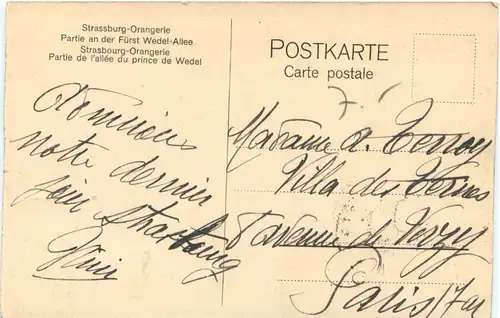 Strassburg-Orangerie
Partie an der Fürst Wedel-Allee
Strasbourg-Orangerie
Partie de l'allée du prince de Wedel
POSTKARTE
Carte postale
notre dernier
jour Strasbourg
Madame A. Terroy
Villa des Ternes
avenue de Verzy
Paris 17